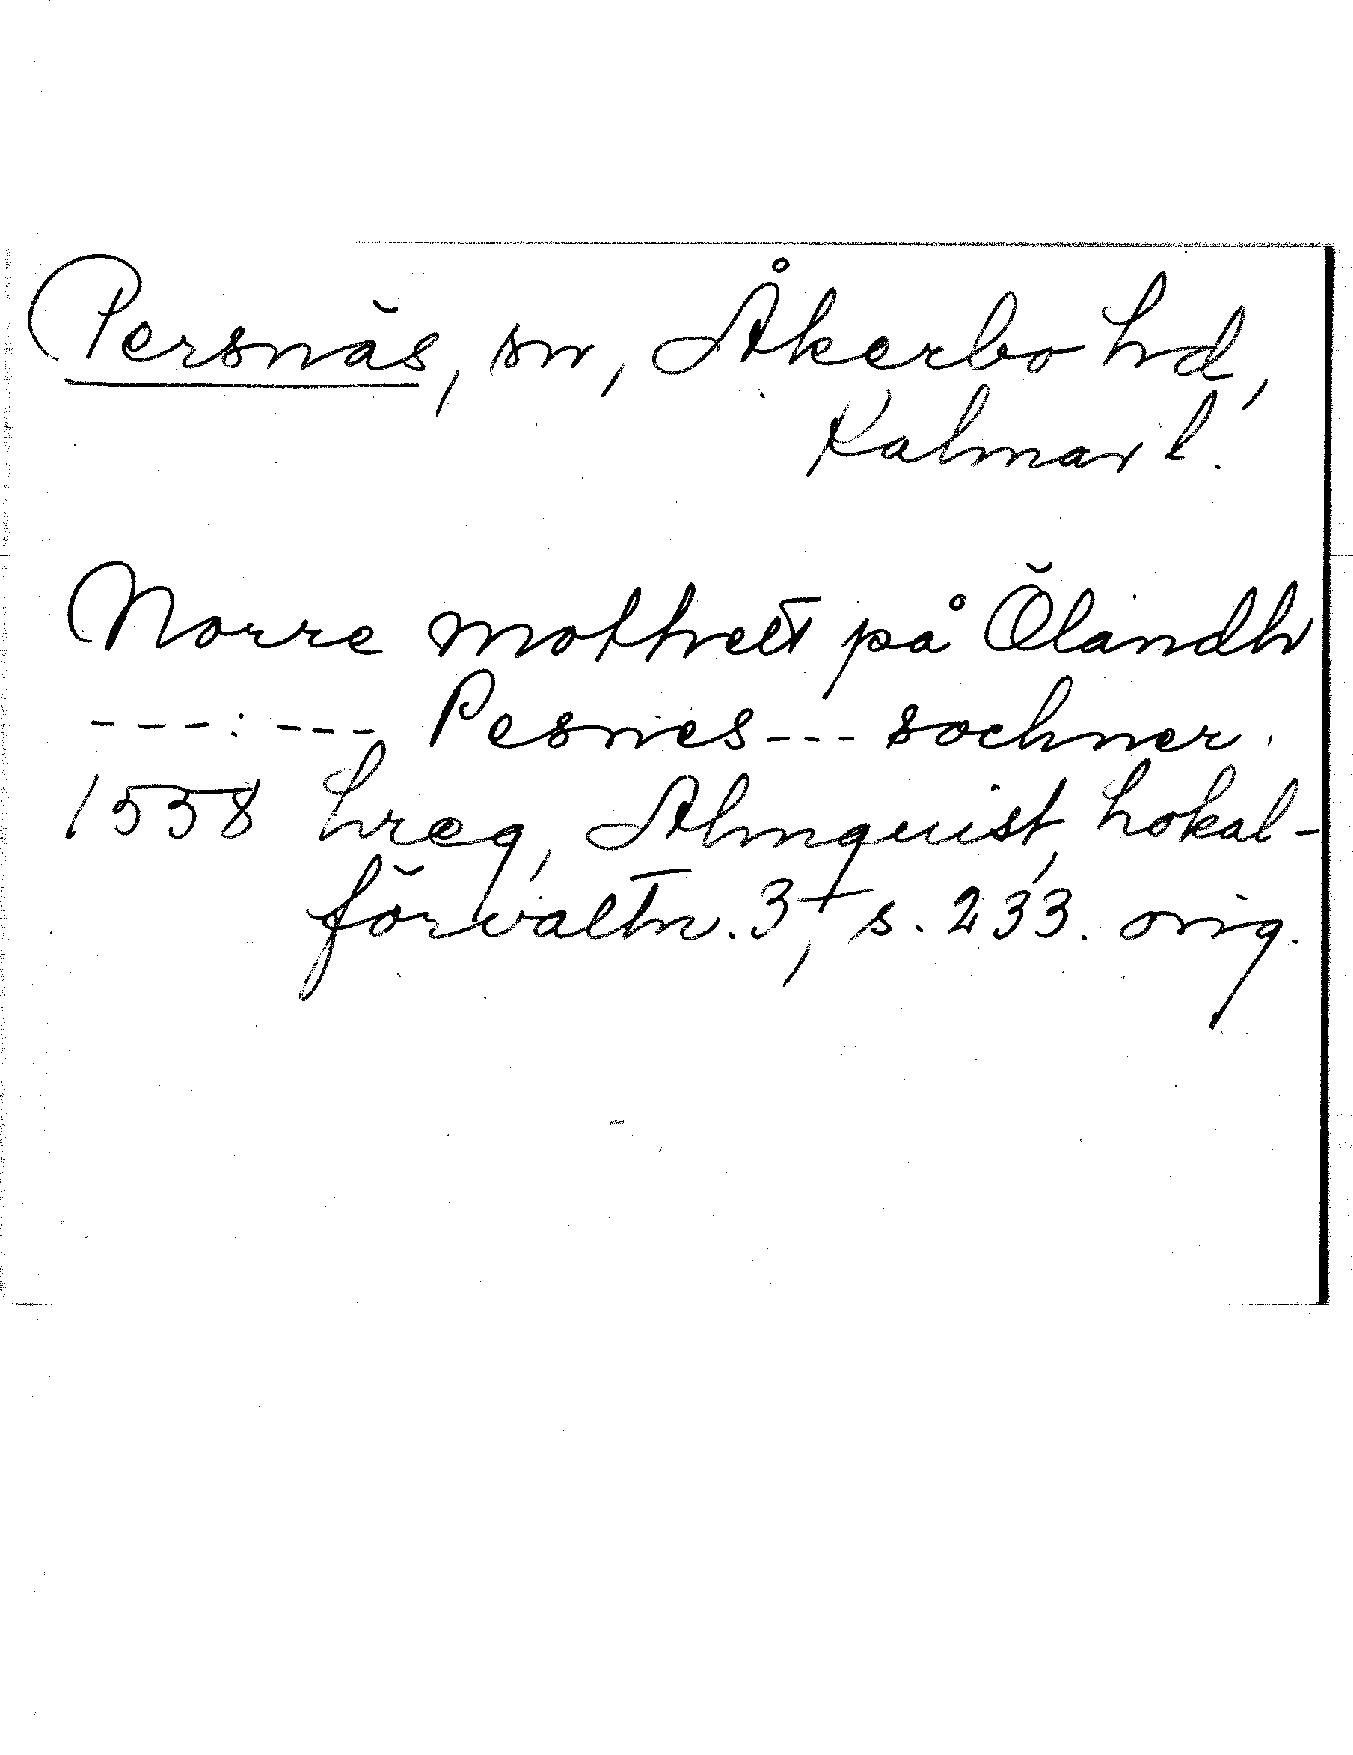 Persnäs, sn, Åkerbo hd,
Kalmar l.
Norre mothett på Ölandh
---:--- Pesnes --- sochner.
1558 hreg, Almquist, Lokal-
förvaltn. 3, s. 233. orig.